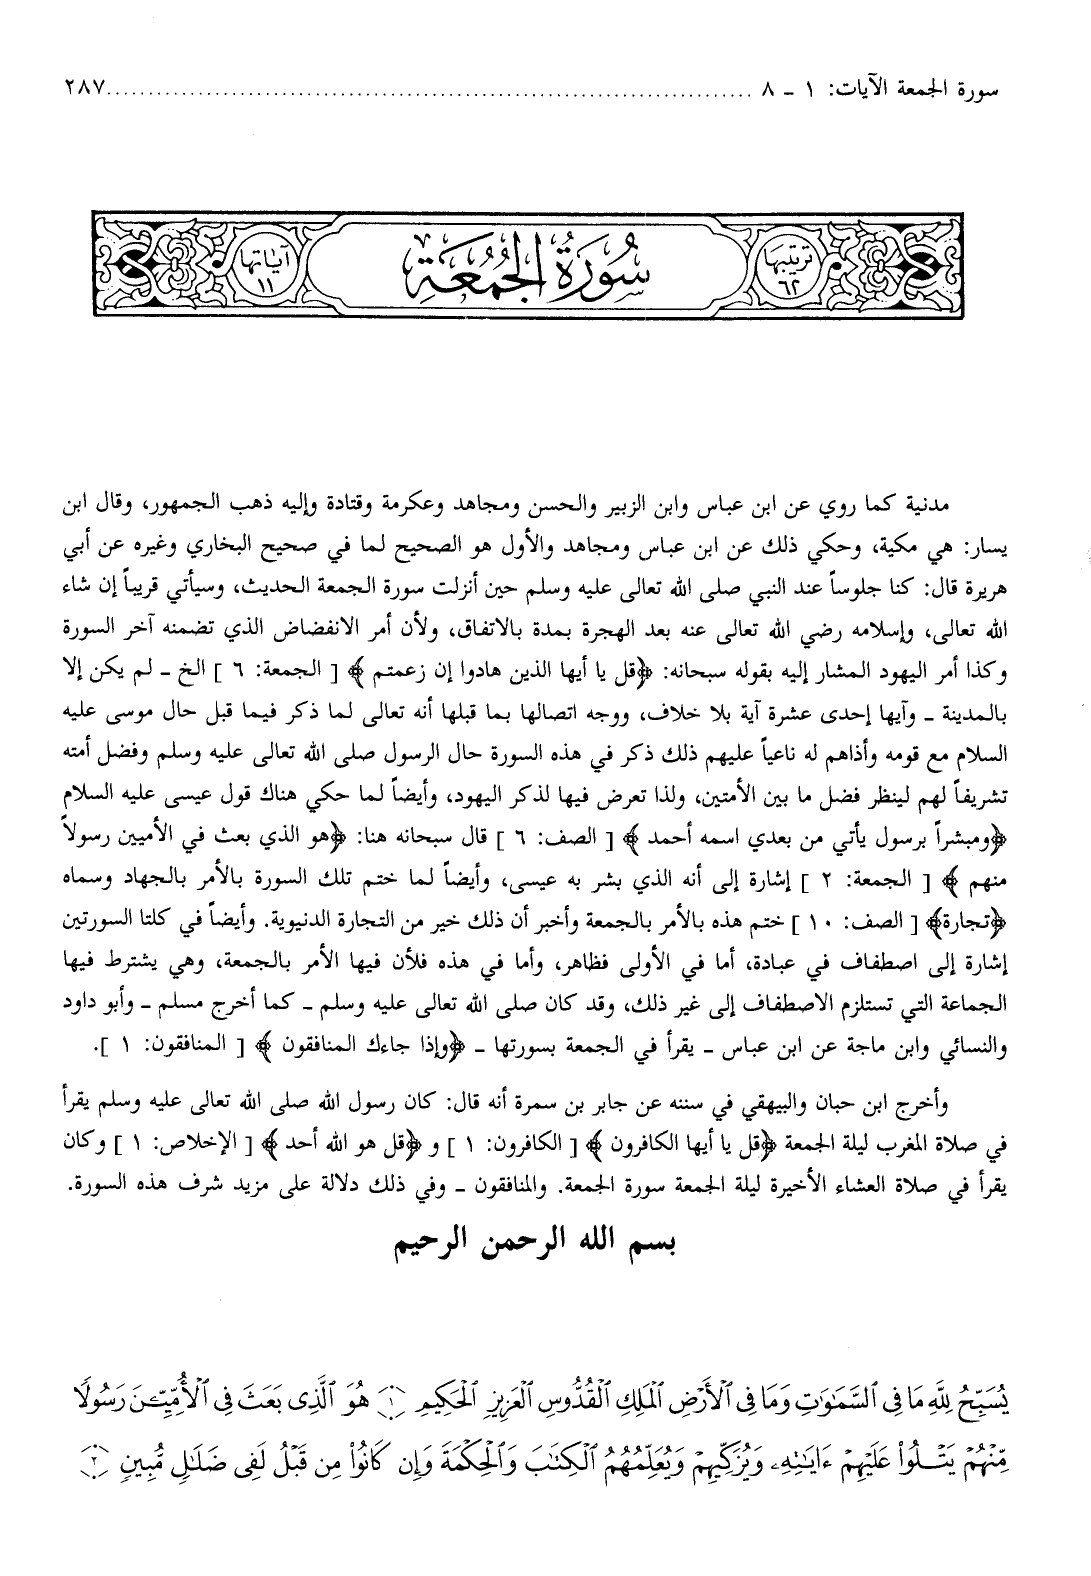 سورة الجمعة الآيات: ١ ـ ٨ ........................................................................... ٢٨٧
ترتيبها ٦٢ سُورَةُ الجُمُعَةِ آياتها ١١
مدنية كما روي عن ابن عباس وابن الزبير والحسن ومجاهد وعكرمة وقتادة وإليه ذهب الجمهور، وقال ابن
يسار: هي مكية، وحكي ذلك عن ابن عباس ومجاهد والأول هو الصحيح لما في صحيح البخاري وغيره عن أبي
هريرة قال: كنا جلوساً عند النبي صلى الله تعالى عليه وسلم حين أنزلت سورة الجمعة الحديث، وسيأتي قريباً إن شاء
الله تعالى، وإسلامه رضي الله تعالى عنه بعد الهجرة بمدة بالاتفاق، ولأن أمر الانفضاض الذي تضمنه آخر السورة
وكذا أمر اليهود المشار إليه بقوله سبحانه: ﴿قل يا أيها الذين هادوا إن زعمتم ﴾ [ الجمعة: ٦ ] الخ ـ لم يكن إلا
بالمدينة ـ وآيها إحدى عشرة آية بلا خلاف، ووجه اتصالها بما قبلها أنه تعالى لما ذكر فيما قبل حال موسى عليه
السلام مع قومه وأذاهم له ناعياً عليهم ذلك ذكر في هذه السورة حال الرسول صلى الله تعالى عليه وسلم وفضل أمته
تشريفاً لهم لينظر فضل ما بين الأمتين، ولذا تعرض فيها لذكر اليهود، وأيضاً لما حكي هناك قول عيسى عليه السلام
﴿ومبشراً برسول يأتي من بعدي اسمه أحمد ﴾ [ الصف: ٦ ] قال سبحانه هنا: ﴿هو الذي بعث في الأميين رسولاً
منهم ﴾ [ الجمعة: ٢ ] إشارة إلى أنه الذي بشر به عيسى، وأيضاً لما ختم تلك السورة بالأمر بالجهاد وسماه
﴿تجارة﴾ [ الصف: ١٠ ] ختم هذه بالأمر بالجمعة وأخبر أن ذلك خير من التجارة الدنيوية. وأيضاً في كلتا السورتين
إشارة إلى اصطفاف في عبادة، أما في الأولى فظاهر، وأما في هذه فلأن فيها الأمر بالجمعة، وهي يشترط فيها
الجماعة التي تستلزم الاصطفاف إلى غير ذلك، وقد كان صلى الله تعالى عليه وسلم ـ كما أخرج مسلم ـ وأبو داود
والنسائي وابن ماجة عن ابن عباس ـ يقرأ في الجمعة بسورتها ـ ﴿وإذا جاءك المنافقون ﴾ [ المنافقون: ١ ].
وأخرج ابن حبان والبيهقي في سننه عن جابر بن سمرة أنه قال: كان رسول الله صلى الله تعالى عليه وسلم يقرأ
في صلاة المغرب ليلة الجمعة ﴿قل يا أيها الكافرون ﴾ [ الكافرون: ١ ] و ﴿قل هو الله أحد ﴾ [ الإخلاص: ١ ] وكان
يقرأ في صلاة العشاء الأخيرة ليلة الجمعة سورة الجمعة. والمنافقون ـ وفي ذلك دلالة على مزيد شرف هذه السورة.
بسم الله الرحمن الرحيم
يُسَبِّحُ لِلَّهِ مَا فِى ٱلسَّمَٰوَٰتِ وَمَا فِى ٱلْأَرْضِ ٱلْمَلِكِ ٱلْقُدُّوسِ ٱلْعَزِيزِ ٱلْحَكِيمِ ١ هُوَ ٱلَّذِى بَعَثَ فِى ٱلْأُمِّيِّـۧنَ رَسُولًا
مِّنْهُمْ يَتْلُوا۟ عَلَيْهِمْ ءَايَٰتِهِۦ وَيُزَكِّيهِمْ وَيُعَلِّمُهُمُ ٱلْكِتَٰبَ وَٱلْحِكْمَةَ وَإِن كَانُوا۟ مِن قَبْلُ لَفِى ضَلَٰلٍ مُّبِينٍ ٢